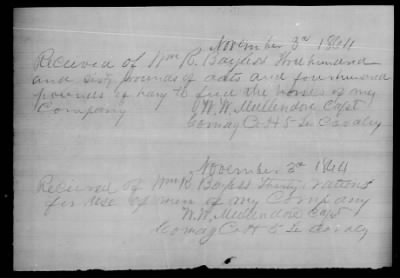 November 3d 1864
Received of Wm R. Bayless Three hundred
and sixty pounds of oats and four hundred
pounds of hay to feed the horses of my
Company W. W. Mullendore Capt
Comdg Co H 5 Te Cavalry
November 3d 1864
Received of Wm R Bayless Thirty rations
for use of men of my Company
W. W. Mullendore Capt
Comdg Co H 5 Te Cavalry